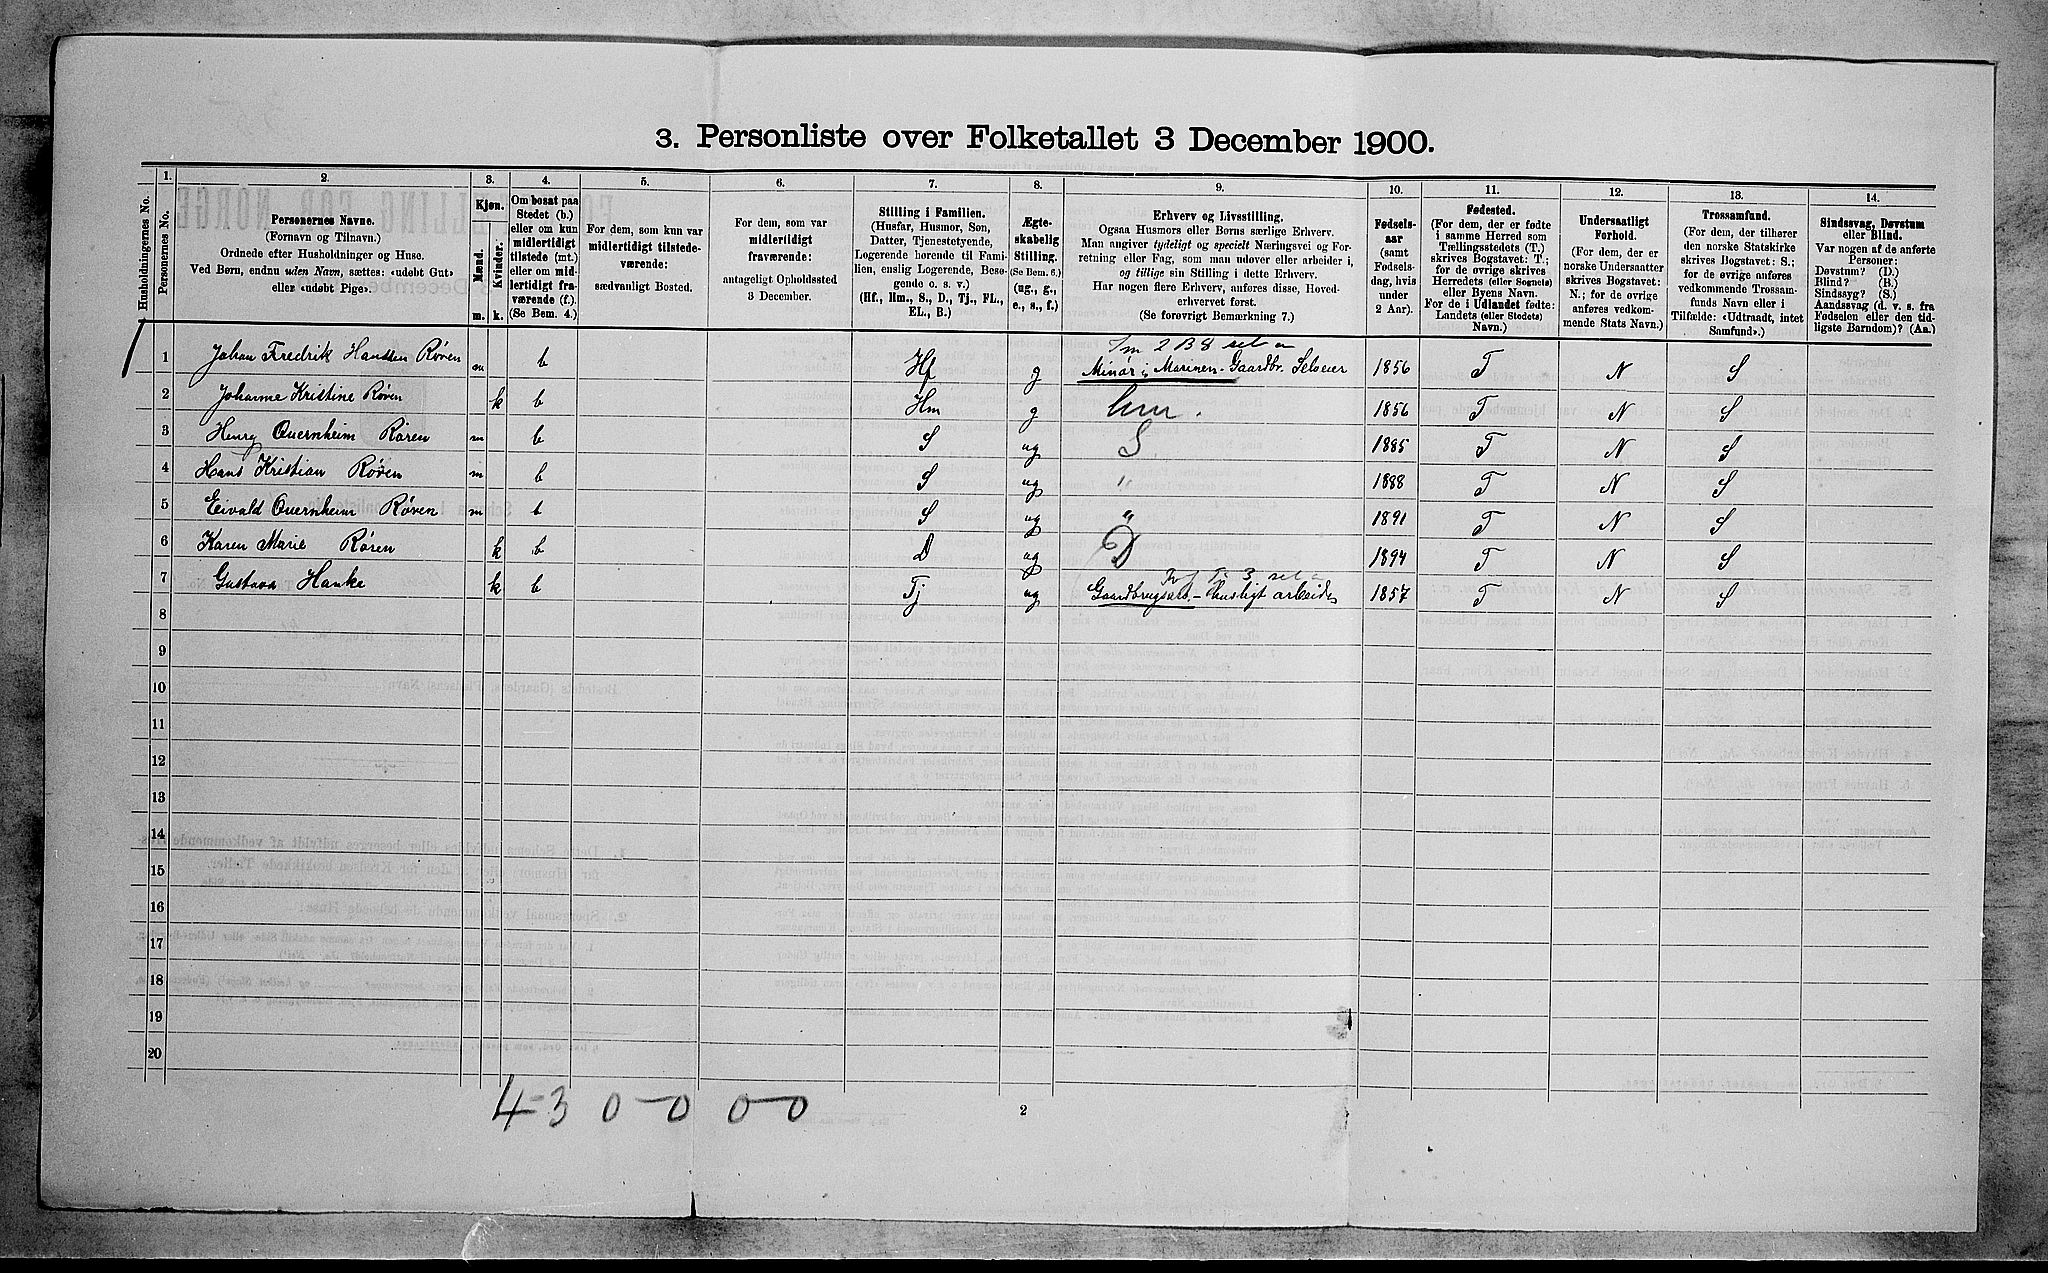 3. Personliste over Folketallet 3 December 1900.
Husholdningernes No.
1.
Personernes No.
2.
Personernes Navne.
(Fornavn og Tilnavn.)
Ordnede efter Husholdninger og Huse.
Ved Børn, endnu uden Navn, sættes: «udøbt Gut»
eller «udøbt Pige».
3.
Kjøn.
Mænd.
Kvinder.
m. k.
4.
Om bosat paa
Stedet (b.)
eller om kun
midlertidigt
tilstede (mt.)
eller om mid-
lertidigt fra-
værende (f.).
(Se Bem. 4.)
5.
For dem, som kun var
midlertidigt tilstede-
værende:
sædvanligt Bosted.
6.
For dem, som var
midlertidigt
fraværende:
antageligt Opholdssted
3 December.
7.
Stilling i Familien.
(Husfar, Husmor, Søn,
Datter, Tjenestetyende,
Logerende hørende til Fami-
lien, enslig Logerende, Besø-
gende o. s. v.)
(Hf., Hm., S., D., Tj., FL.,
EL., B.)
8.
Ægte-
skabelig
Stilling.
(Se Bem. 6.)
(ug., g.,
e., s., f.)
9.
Erhverv og Livsstilling.
Ogsaa Husmors eller Børns særlige Erhverv.
Man angiver tydeligt og specielt Næringsvei og For-
retning eller Fag, som man udøver eller arbeider i,
og tillige sin Stilling i dette Erhverv.
Har nogen flere Erhverv, anføres disse, Hoved-
erhvervet først.
(Se forøvrigt Bemærkning 7.)
10.
Fødsels-
aar
(samt
Fødsels-
dag, hvis
under
2 Aar).
11.
Fødested.
(For dem, der er fødte
i samme Herred som
Tællingsstedets (T.)
skrives Bogstavet: T.;
for de øvrige skrives
Herredets (eller Sognets)
eller Byens Navn.
For de i Udlandet fødte:
Landets (eller Stedets)
Navn.)
12.
Undersaatligt
Forhold.
(For dem, der er
norske Undersaatter
skrives Bogstavet:
N.; for de øvrige
anføres vedkom-
mende Stats Navn.)
13.
Trossamfund.
(For dem, der tilhører
den norske Statskirke
skrives Bogstavet: S.;
for de øvrige anføres
vedkommende Trossam-
funds Navn eller i
Tilfælde: «Udtraadt, intet
Samfund».)
14.
Sindssvag, Døvstum
eller Blind.
Var nogen af de anførte
Personer:
Døvstum? (D.)
Blind? (B.)
Sindssyg? (S.)
Aandssvag (d. v. s. fra
Fødselen eller den tid-
ligste Barndom)? (Aa.)
1 1 Johan Fredrik Hansen Røren m b Hf g Minør i Marinen - Gaardbr. Selveier 1856 T N S
2 Johanne Kristine Røren k b Hm g hm. 1856 T N S
3 Henry Quernheim Røren m b S ug S 1885 T N S
4 Hans Kristian Røren m b S ug " 1888 T N S
5 Eivald Quernheim Røren m b S ug " 1891 T N S
6 Karen Marie Røren k b D ug D 1894 T N S
7 Gustava Hanke k b Tj ug Gaardbrugsarb. - husligt arbeide 1857 T N S
8
9
10
11
12
13
14
15
16
17
18
19
20
4-3 0-0 0-0
2